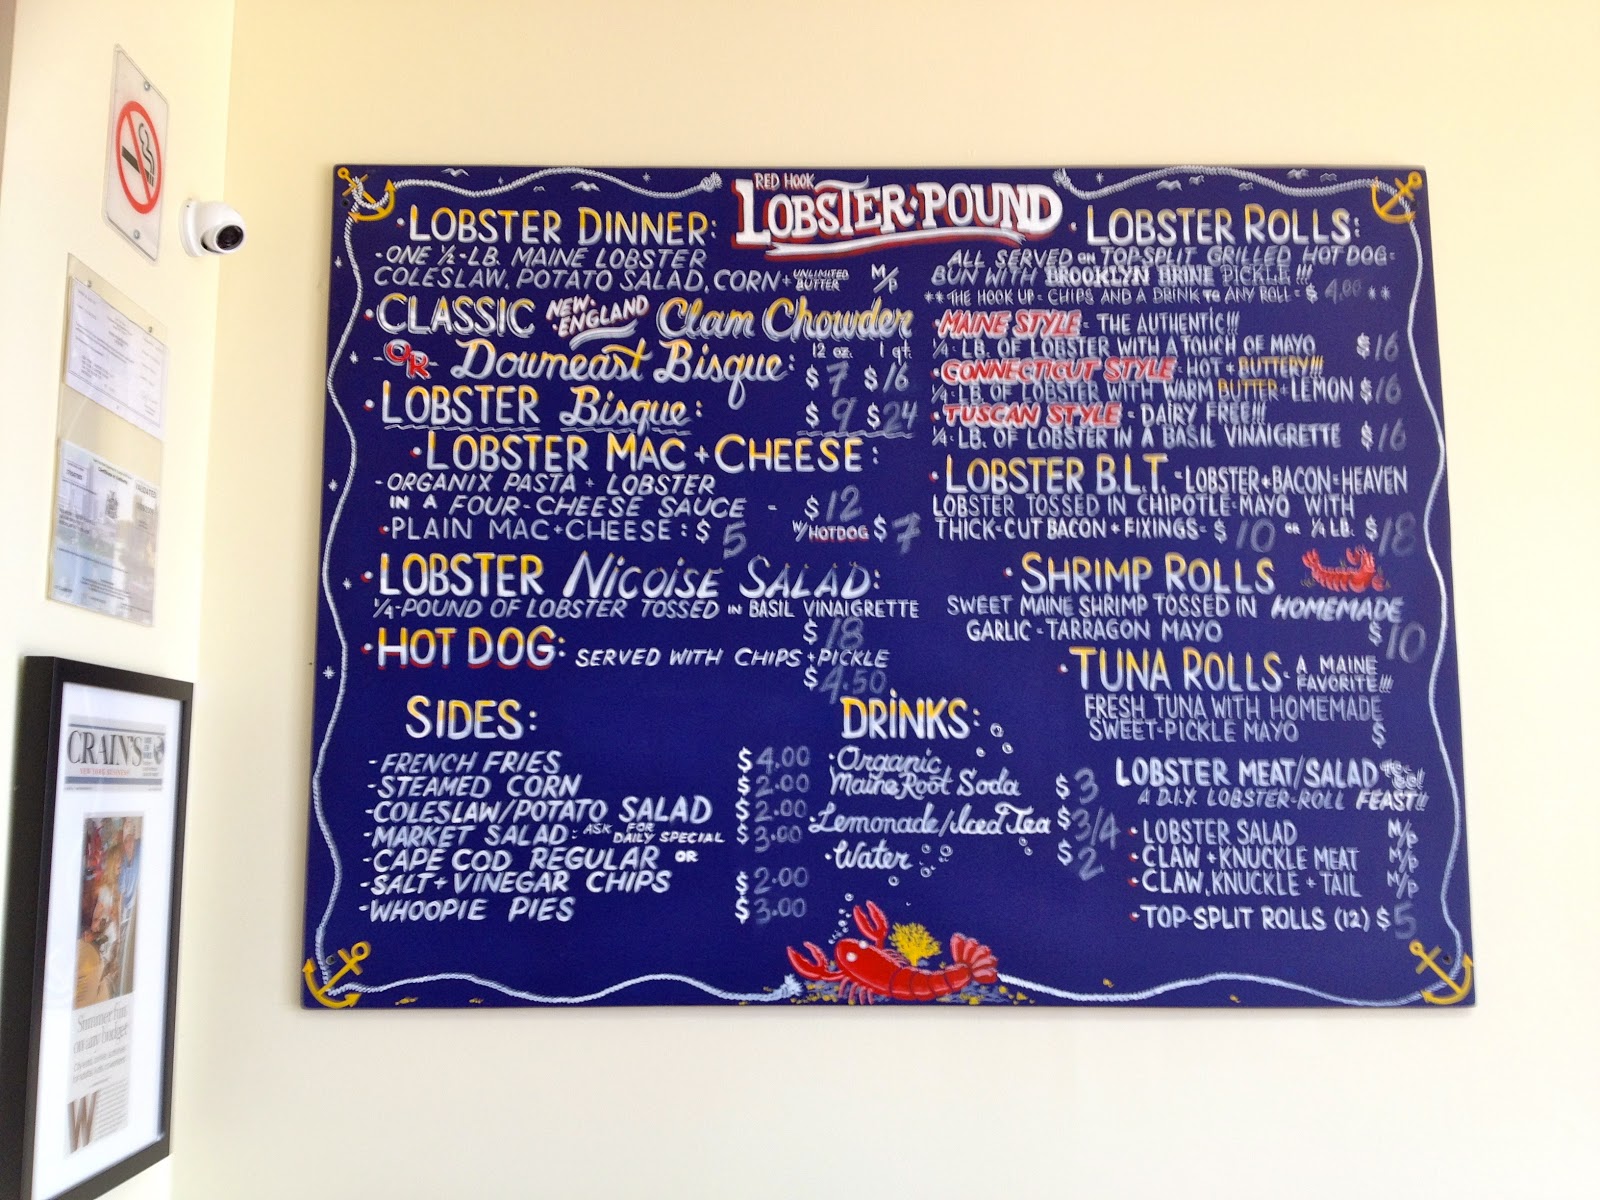 RED HOOK
LOBSTER·POUND
· LOBSTER DINNER:
- ONE ½-LB. MAINE LOBSTER
COLESLAW, POTATO SALAD, CORN + UNLIMITED BUTTER M/P
· CLASSIC NEW-ENGLAND Clam Chowder
- OR Downeast Bisque: 12 oz. 1 qt.
$7 $16
· LOBSTER Bisque: $9 $24
· LOBSTER MAC + CHEESE:
- ORGANIX PASTA + LOBSTER
IN A FOUR-CHEESE SAUCE - $12
· PLAIN MAC+CHEESE: $5 W/HOTDOG $7
· LOBSTER NICOISE SALAD:
¼-POUND OF LOBSTER TOSSED IN BASIL VINAIGRETTE
$18
· HOT DOG: SERVED WITH CHIPS + PICKLE
$4.50
SIDES:
- FRENCH FRIES $4.00
- STEAMED CORN $2.00
- COLESLAW/POTATO SALAD $2.00
- MARKET SALAD: ASK FOR DAILY SPECIAL $3.00
- CAPE COD REGULAR OR
- SALT + VINEGAR CHIPS $2.00
- WHOOPIE PIES $3.00
DRINKS:
· Organic
Maine Root Soda $3
· Lemonade/Iced Tea $3/4
· Water $2
· LOBSTER ROLLS:
ALL SERVED ON TOP-SPLIT GRILLED HOT DOG=
BUN WITH BROOKLYN BRINE PICKLE!!!
** THE HOOK UP = CHIPS AND A DRINK TO ANY ROLL = $4.00 **
· MAINE STYLE = THE AUTHENTIC!!!
¼ LB. OF LOBSTER WITH A TOUCH OF MAYO $16
· CONNECTICUT STYLE = HOT + BUTTERY!!!
¼ LB. OF LOBSTER WITH WARM BUTTER + LEMON $16
· TUSCAN STYLE = DAIRY FREE!!!
¼ LB. OF LOBSTER IN A BASIL VINAIGRETTE $16
· LOBSTER B.L.T. = LOBSTER + BACON = HEAVEN
LOBSTER TOSSED IN CHIPOTLE-MAYO WITH
THICK-CUT BACON + FIXINGS = $10 OR ¼ LB. $18
· SHRIMP ROLLS
SWEET MAINE SHRIMP TOSSED IN HOMEMADE
GARLIC - TARRAGON MAYO $10
· TUNA ROLLS - A MAINE
FAVORITE!!!
FRESH TUNA WITH HOMEMADE
SWEET-PICKLE MAYO $
LOBSTER MEAT/SALAD
A D.I.Y. LOBSTER-ROLL FEAST!!
· LOBSTER SALAD M/P
· CLAW + KNUCKLE MEAT M/P
· CLAW, KNUCKLE + TAIL M/P
· TOP-SPLIT ROLLS (12) $5
CRAIN'S
NEW YORK BUSINESS
Summer fun
on any budget
W